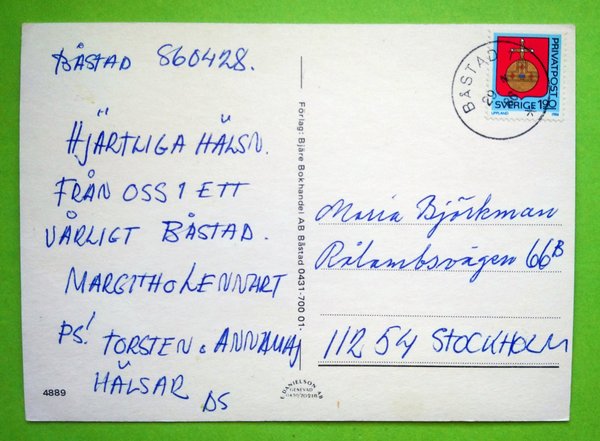 BÅSTAD 860428.
HJÄRTLIGA HÄLSN.
FRÅN OSS I ETT
VÅRLIGT BÅSTAD.
MARGITH o LENNART
PS! TORSTEN o ANNAMAJ
HÄLSAR DS
4889
Förlag: Bjäre Bokhandel AB Båstad 0431-700 01
DANIELSON
BÅSTAD
PRIVATPOST
SVERIGE 190
UPPLAND
Maria Björkman
Rålambsvägen 66B
112 54 STOCKHOLM